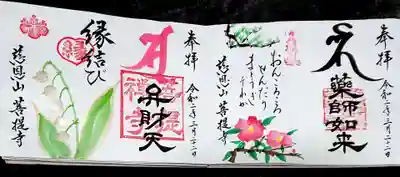 奉拝
令和二年三月二十二日
薬師如来
おんころころ
せんだり
まとうぎ
そわか
慈恩山 菩提寺
奉拝
令和二年三月二十二日
弁財天
縁結び
慈恩山 菩提寺